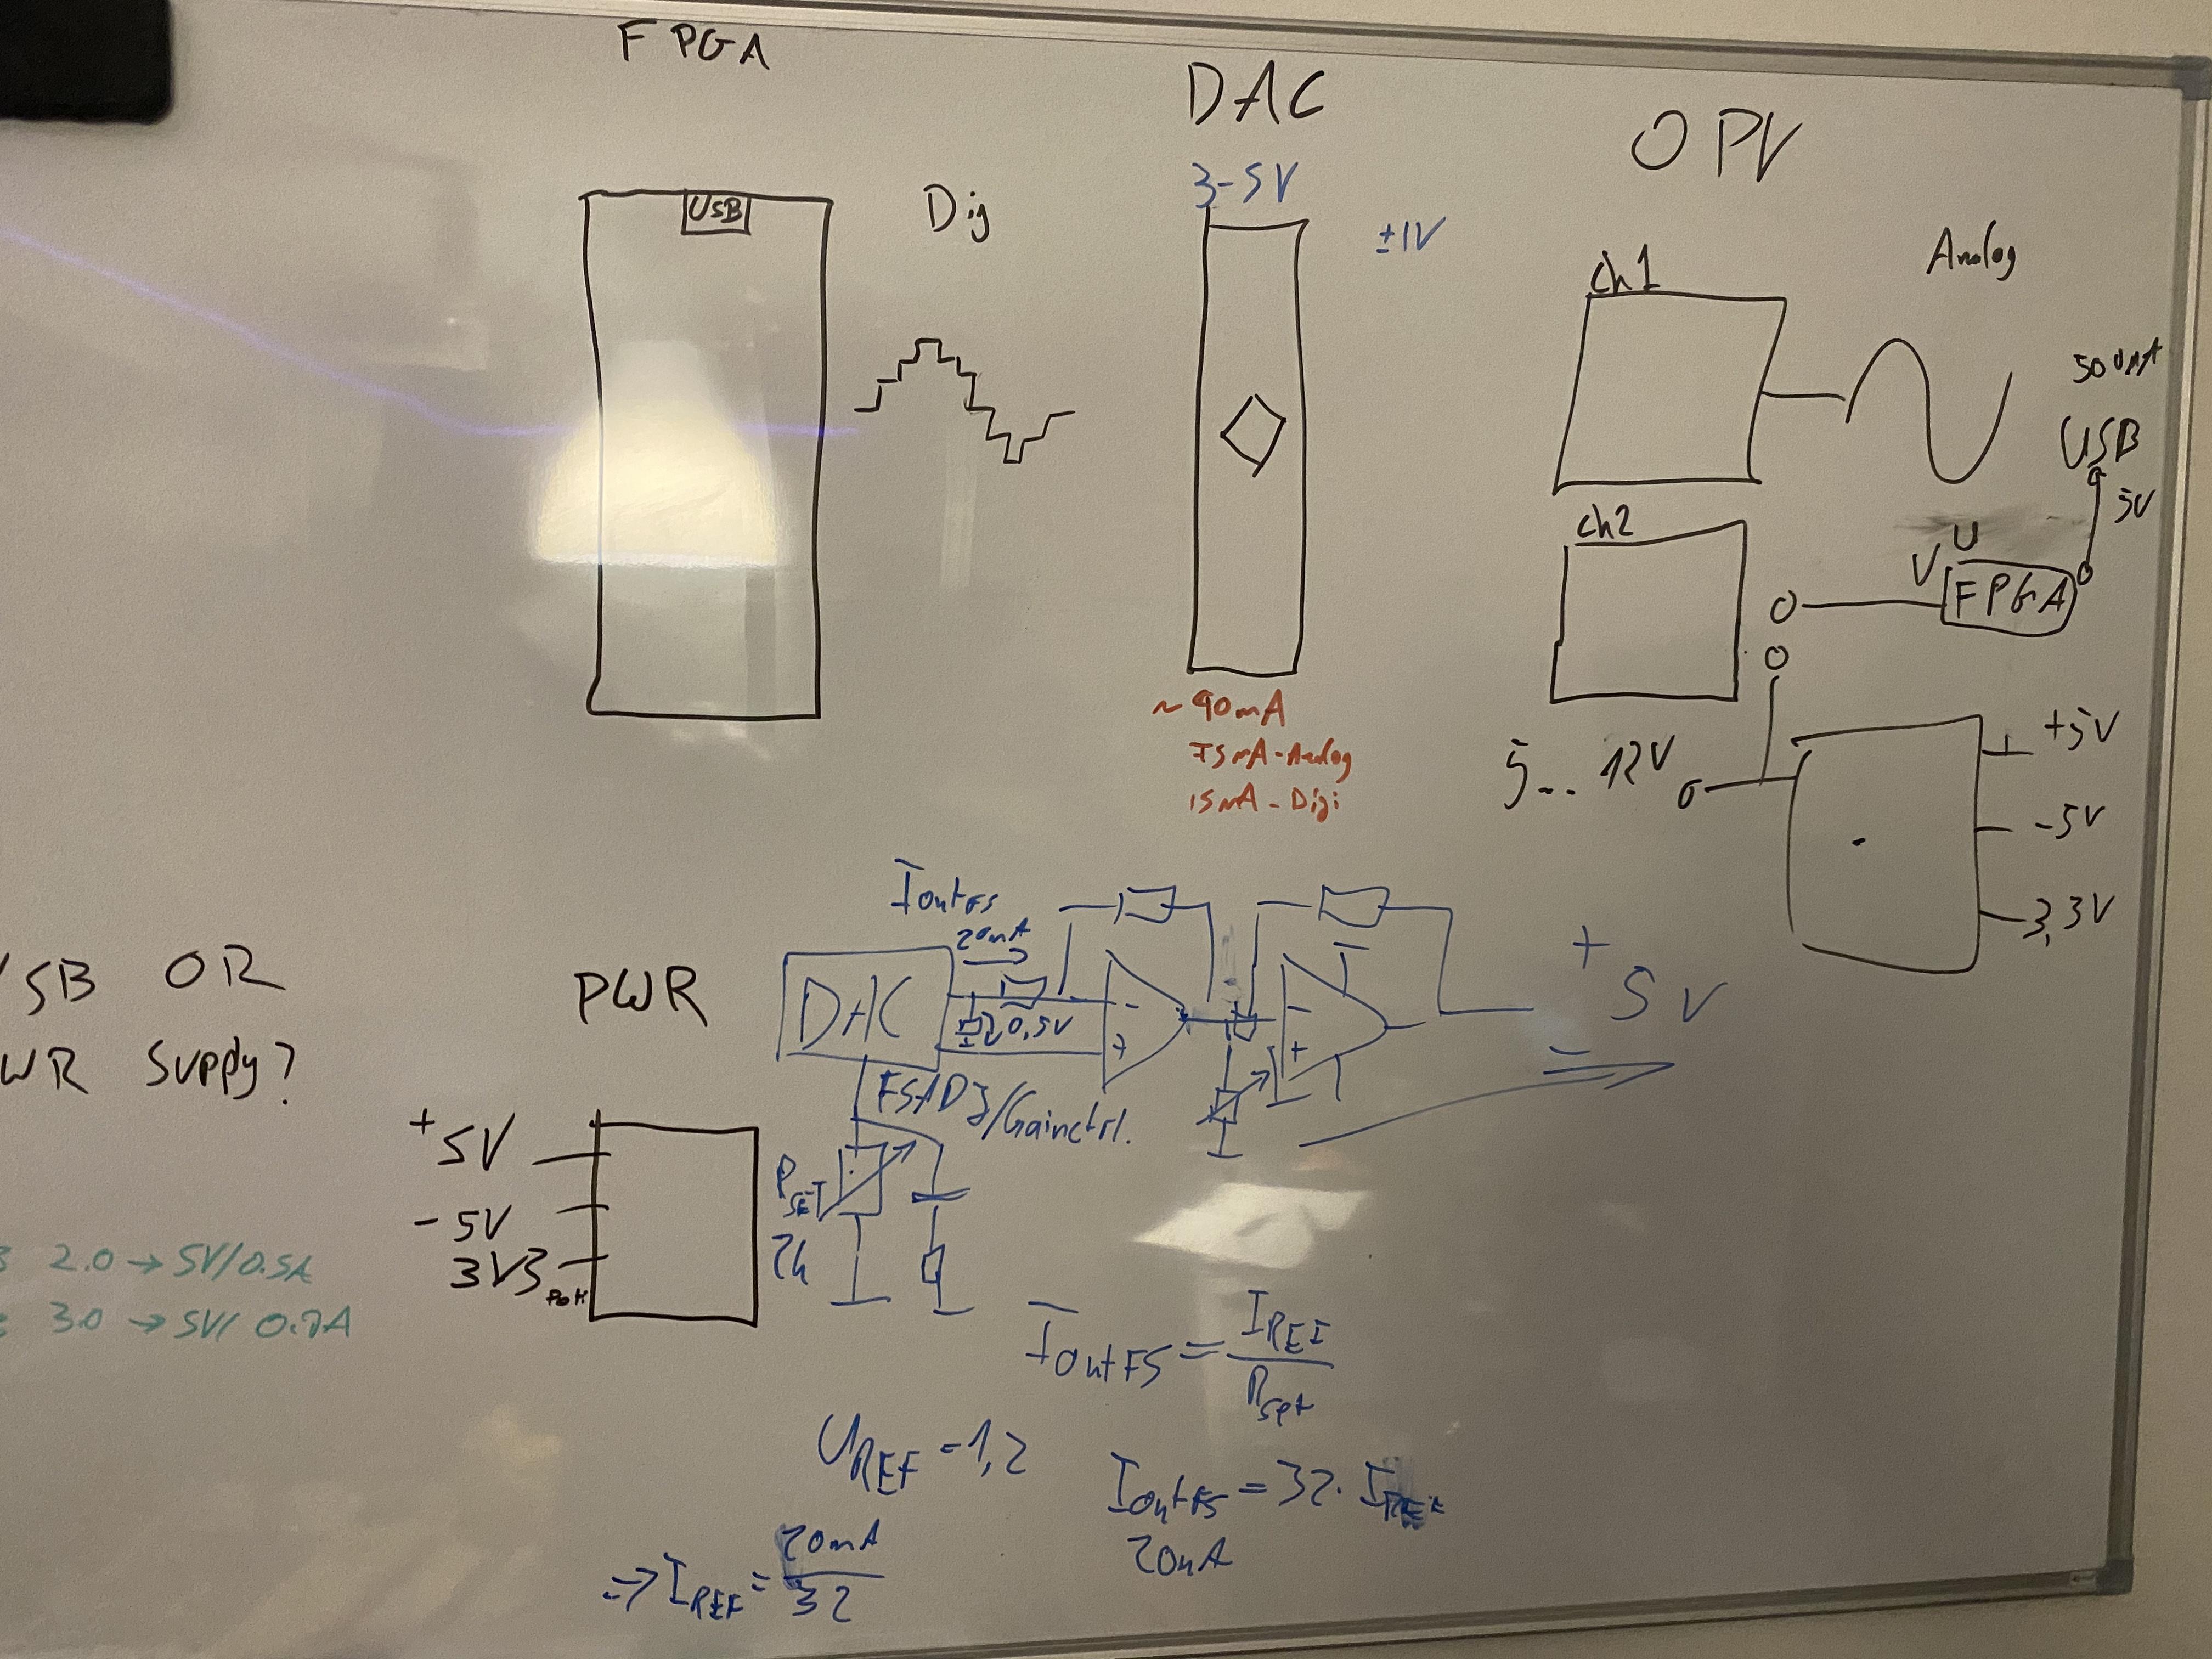 FPGA
DAC
OPV
USB
Dig
3-5V
±1V
ch1
Analog
500mA
USB
5V
ch2
U
V
FPGA
~90mA
75mA-Analog
15mA-Digi
5... 12V
+5V
-5V
3,3V
IoutFS
20mA
DAC
0,5V
-
+
-
+
+
5V
-
FSADJ/Gainctrl.
RSET
2k
SB OR
WR Supply?
PWR
+5V
-5V
3V3
2.0 → 5V/0.5A
3.0 → 5V/
IoutFS = IREF
Rset
UREF = 1,2
IoutFS = 32 · IREF
20mA
⇒ IREF = 20mA
32